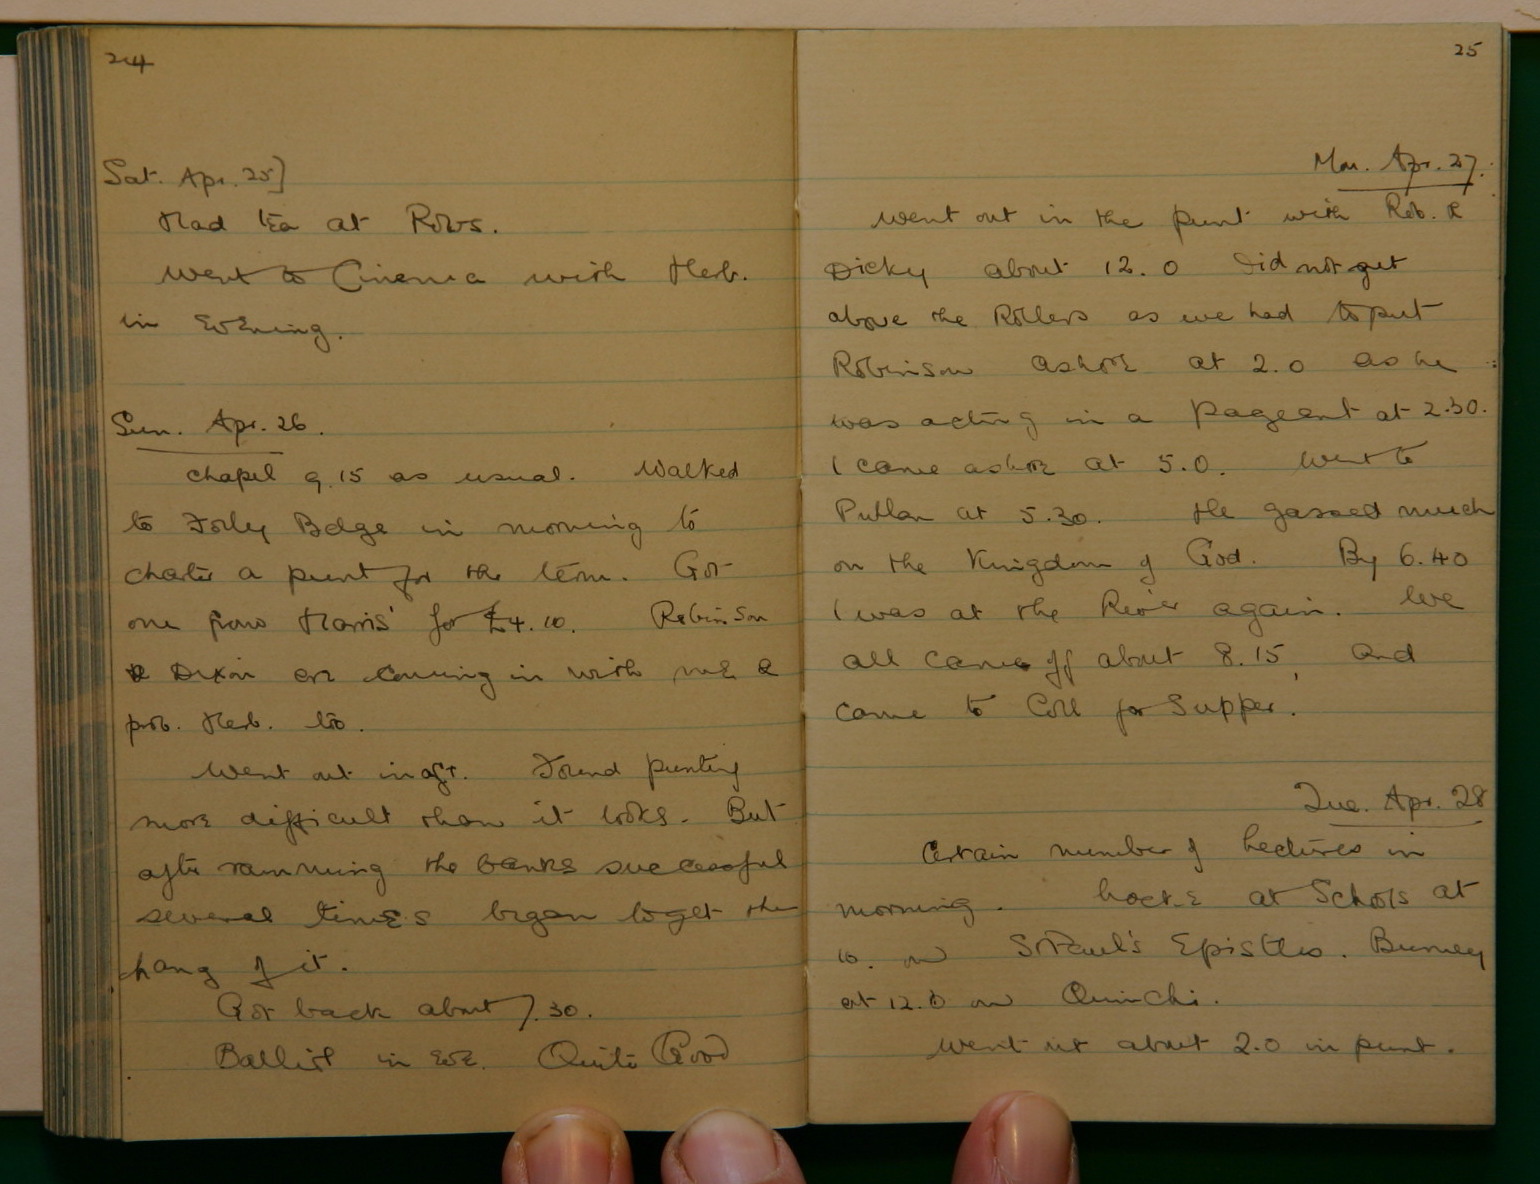 24
Sat. Apr. 25]
Had tea at Rob's.
Went to Cinema with Herb.
in Evening.
Sun. Apr. 26.
Chapel 9.15 as usual. Walked
to Folly Bdge in morning to
charter a punt for the term. Got
one from Harris' for £4.10. Robinson
& Dixon are coming in with me &
prob. Herb. too.
Went out in aft. Found punting
more difficult than it looks. But
after ramming the banks successful
several times began to get the
hang of it.
Got back about 7.30.
Balliol in eve. Quite Good
25
Mon. Apr. 27.
Went out in the punt with Rob. &
Dicky about 12.0 Did not get
above the Rollers as we had to put
Robinson ashore at 2.0 as he
was acting in a Pageant at 2.30.
I came ashore at 5.0. Went to
Pullan at 5.30. He gassed much
on the Kingdom of God. By 6.40
I was at the River again. We
all came off about 8.15, and
came to Coll for Supper.
Tue. Apr. 28
Certain number of Lectures in
morning. Locke at Schools at
10. on St Paul's Epistles. Burney
at 12.0 on
Went out about 2.0 in punt.